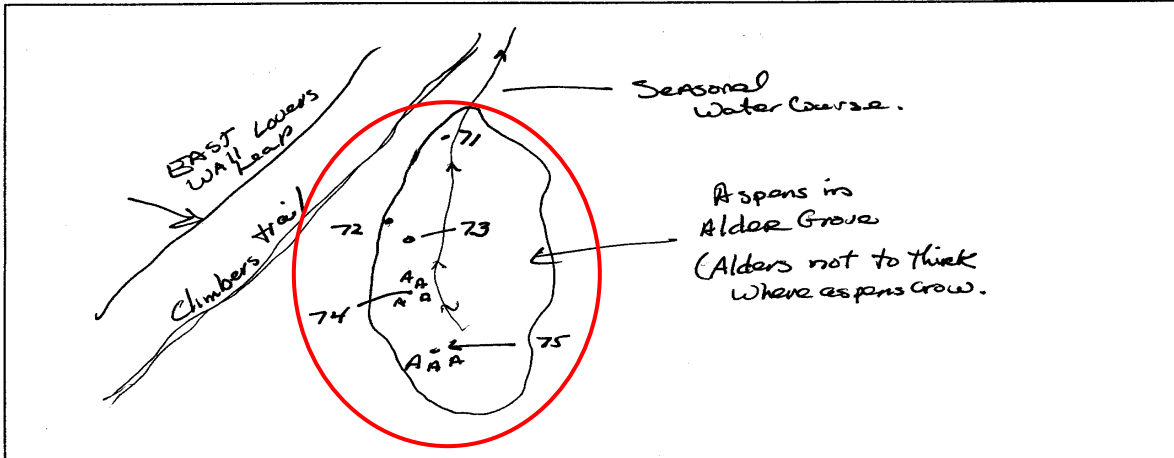 EAST Lovers
WALL Leap
Climbers trail
Seasonal
Water Course.
71
72
73
Aspens in
Alder Grove
(Alders not to thick
where aspens grow.
A A
A A
74
75
A A A